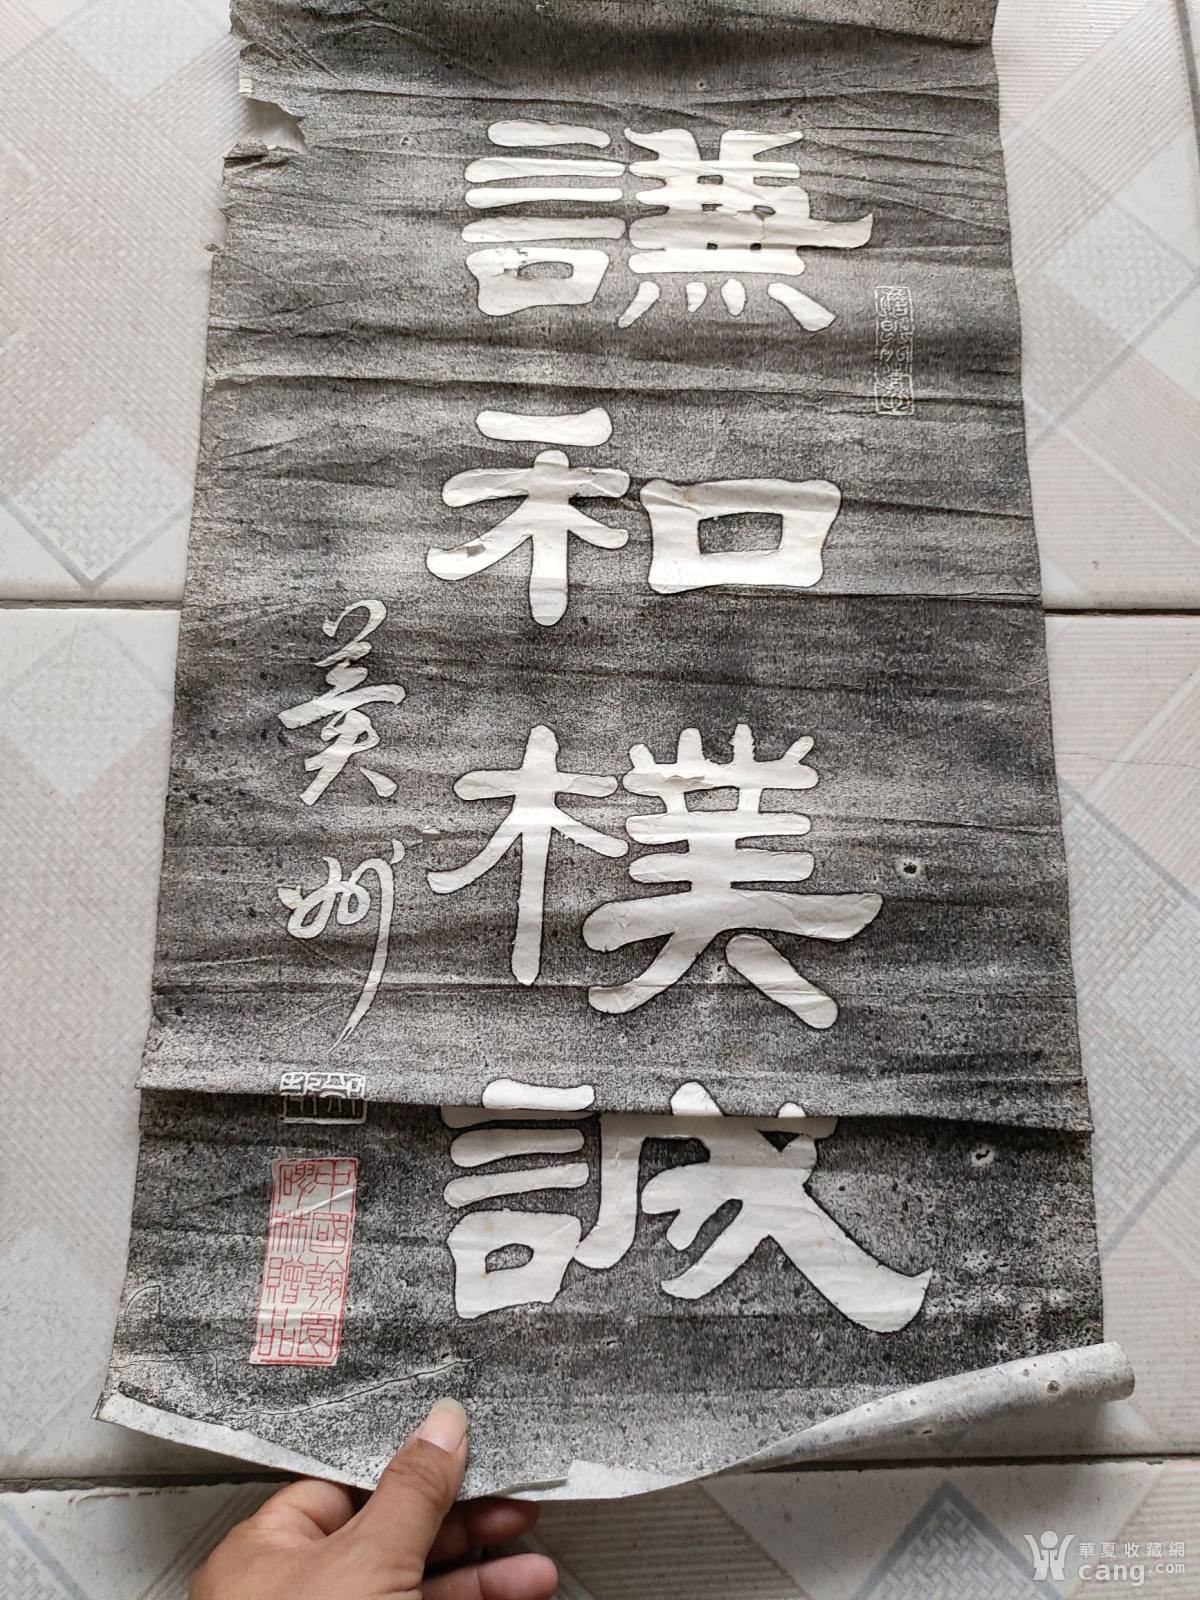 謙和樸誠
中國翰園
碑林贈品
華夏收藏網
cang.com